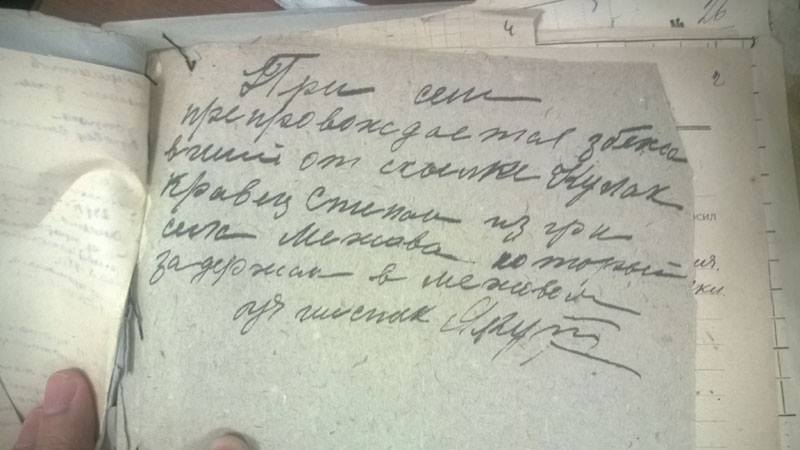 26
4
2
При сем
препровождается збежа
вший от ссылке Кулак
Кравец Степан из гри
села Межова который
задержан в межовом
сил
ия,
ки.